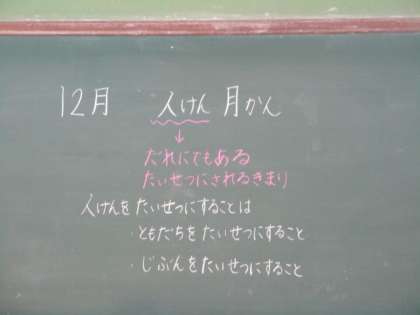 12月 人けん月かん
↓
だれにでもある
たいせつにされるきまり
人けんをたいせつにすることは
・ともだちをたいせつにすること
・じぶんをたいせつにすること